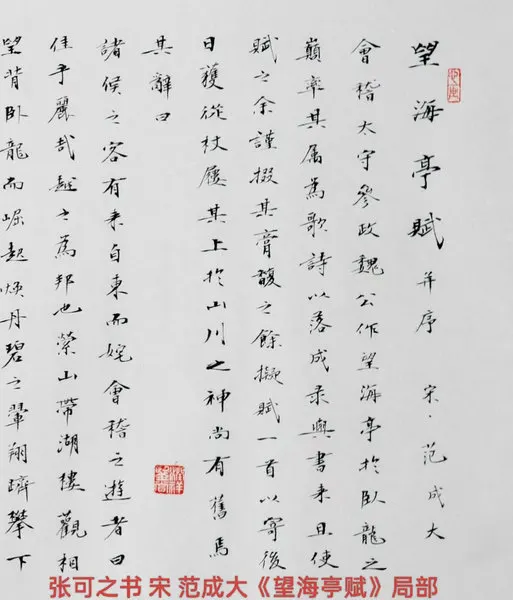 望海亭賦 并序 宋·范成大
會稽太守參政魏公作望海亭於卧龍之
巔率其属為歌詩以落成录與書来且使
賦之余謹掇其膏馥之餘擬賦一首以寄後
日獲從杖屨其上於山川之神尚有舊焉
其辭曰
諸侯之客有来自東而姹會稽之遊者曰
佳乎麗哉越之為邦也縈山帶湖樓觀相
望背卧龍而崛起煥丹碧之翬翔躋攀下
张可之书 宋 范成大《望海亭赋》局部